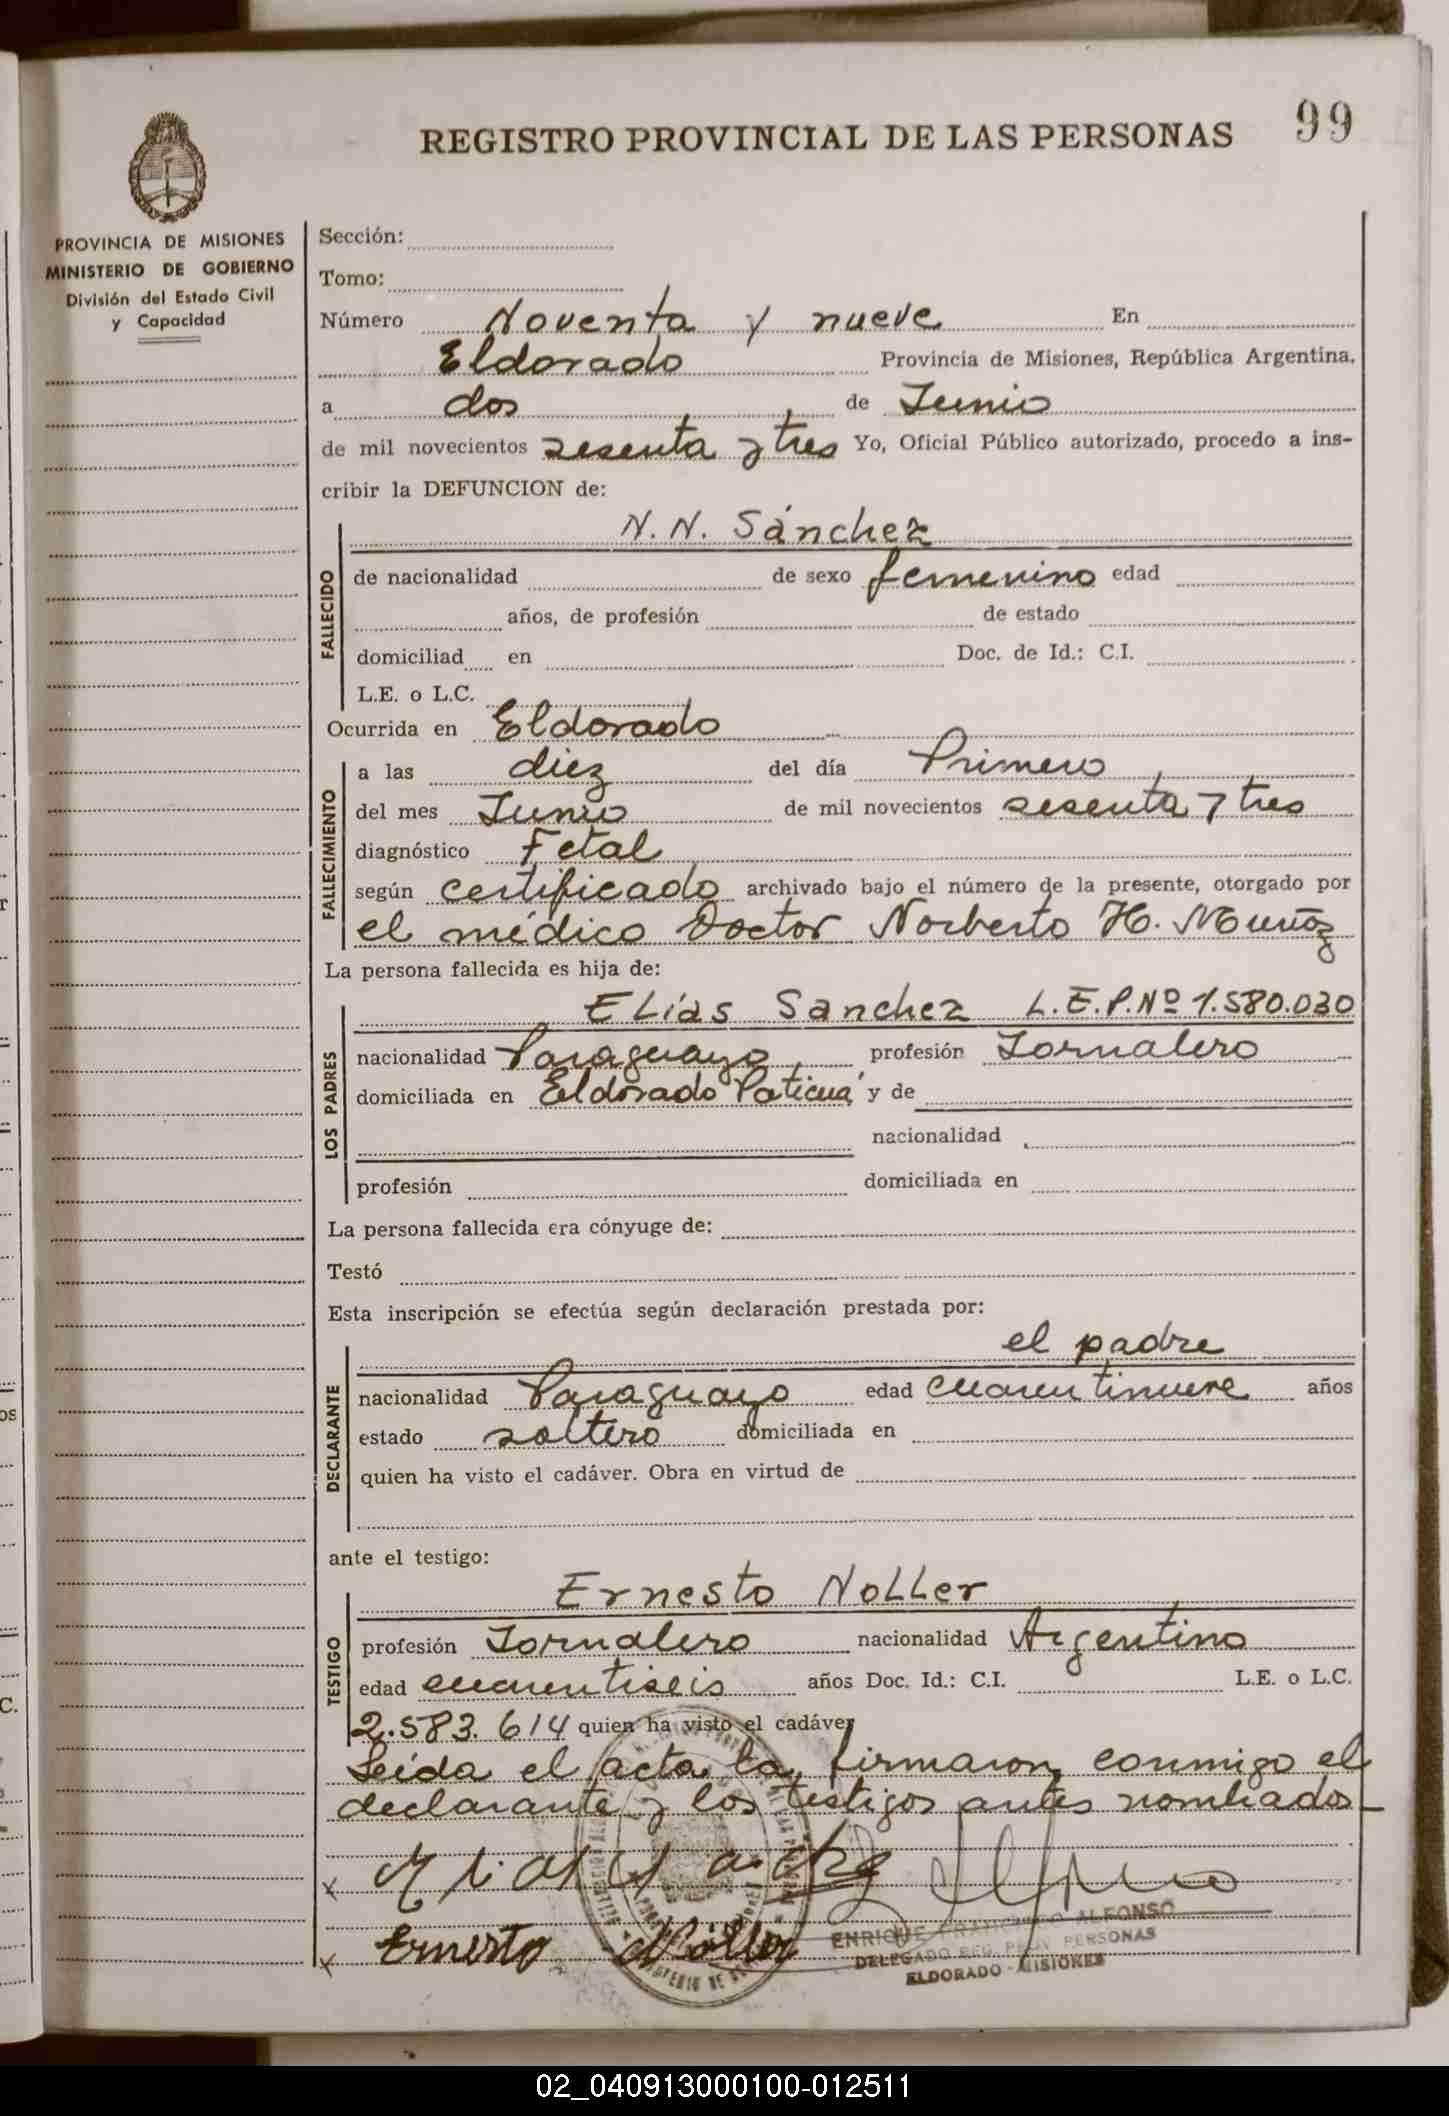 99
REGISTRO PROVINCIAL DE LAS PERSONAS
PROVINCIA DE MISIONES
MINISTERIO DE GOBIERNO
División del Estado Civil
y Capacidad
Sección:
Tomo:
Número Noventa y nueve En
Eldorado Provincia de Misiones, República Argentina,
a dos de Junio
de mil novecientos sesenta y tres Yo, Oficial Público autorizado, procedo a ins-
cribir la DEFUNCION de:
N. N. Sánchez
FALLECIDO
de nacionalidad de sexo femenino edad
años, de profesión de estado
domiciliad en Doc. de Id.: C.I.
L.E. o L.C.
Ocurrida en Eldorado
FALLECIMIENTO
a las diez del día Primero
del mes Junio de mil novecientos sesenta y tres
diagnóstico Fetal
según certificado archivado bajo el número de la presente, otorgado por
el médico Doctor Norberto H. Muñoz
La persona fallecida es hija de:
LOS PADRES
ELías Sanchez L.E.P.Nº 1.580.030
nacionalidad Paraguayo profesión Jornalero
domiciliada en Eldorado Paticuá y de
nacionalidad
profesión domiciliada en
La persona fallecida era cónyuge de:
Testó
Esta inscripción se efectúa según declaración prestada por:
DECLARANTE
el padre
nacionalidad Paraguayo edad cuarentinueve años
estado soltero domiciliada en
quien ha visto el cadáver. Obra en virtud de
ante el testigo:
TESTIGO
Ernesto NoLLer
profesión Jornalero nacionalidad Argentino
edad cuarentiseis años Doc. Id.: C.I. L.E. o L.C.
2.583.614 quien ha visto el cadáver
Leida el acta la firmaron conmigo el
declarante y los testigos antes nombrados
x
x Ernesto Nöller
ENRIQUE FRANCISCO ALFONSO
DELEGADO REG. PROV. PERSONAS
ELDORADO - MISIONES
02_040913000100-012511